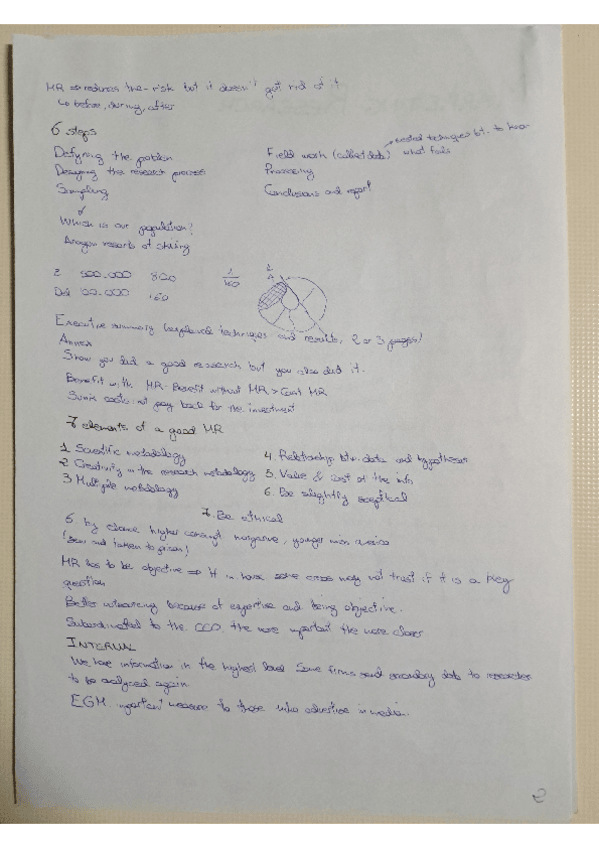 MR => reduces the risk but it doesn't get rid of it
↳ before, during, after
6 steps
Defyning the problem
Desigining the research process
Sampling
Field work (collect data)
what fails
Processing
Conclusions and report
Which is our population?
Aragon resorts of skiing
Z 500.000 800
100.000 160
Executive summary techniques and results, 2 or 3 pages!
Annex
Show you did a good research but you also did it.
Benefit with MR - Benefit without MR > Cost MR
Sunk costs: not pay back for the investment
7 elements of a good MR
1 Scientific metodology
2 Creativity in the research metodology
3 Multiple metodology
4. Relationship btw. data and hypothesis
5. Value & cost of the info
6. Be slightly sceptical
7. Be ethical
6. higher younger
MR has to be objective => If in have some cross may not trust if it is a key
question
Better outsourcing because of expertise and being objective.
Subordinated to the CEO, the more important the more closer
INTERNAL
We have information in the highest level. Some firms send secondary data to researches
to be analyzed again
EGM. important measure to those who advertise in media.
2